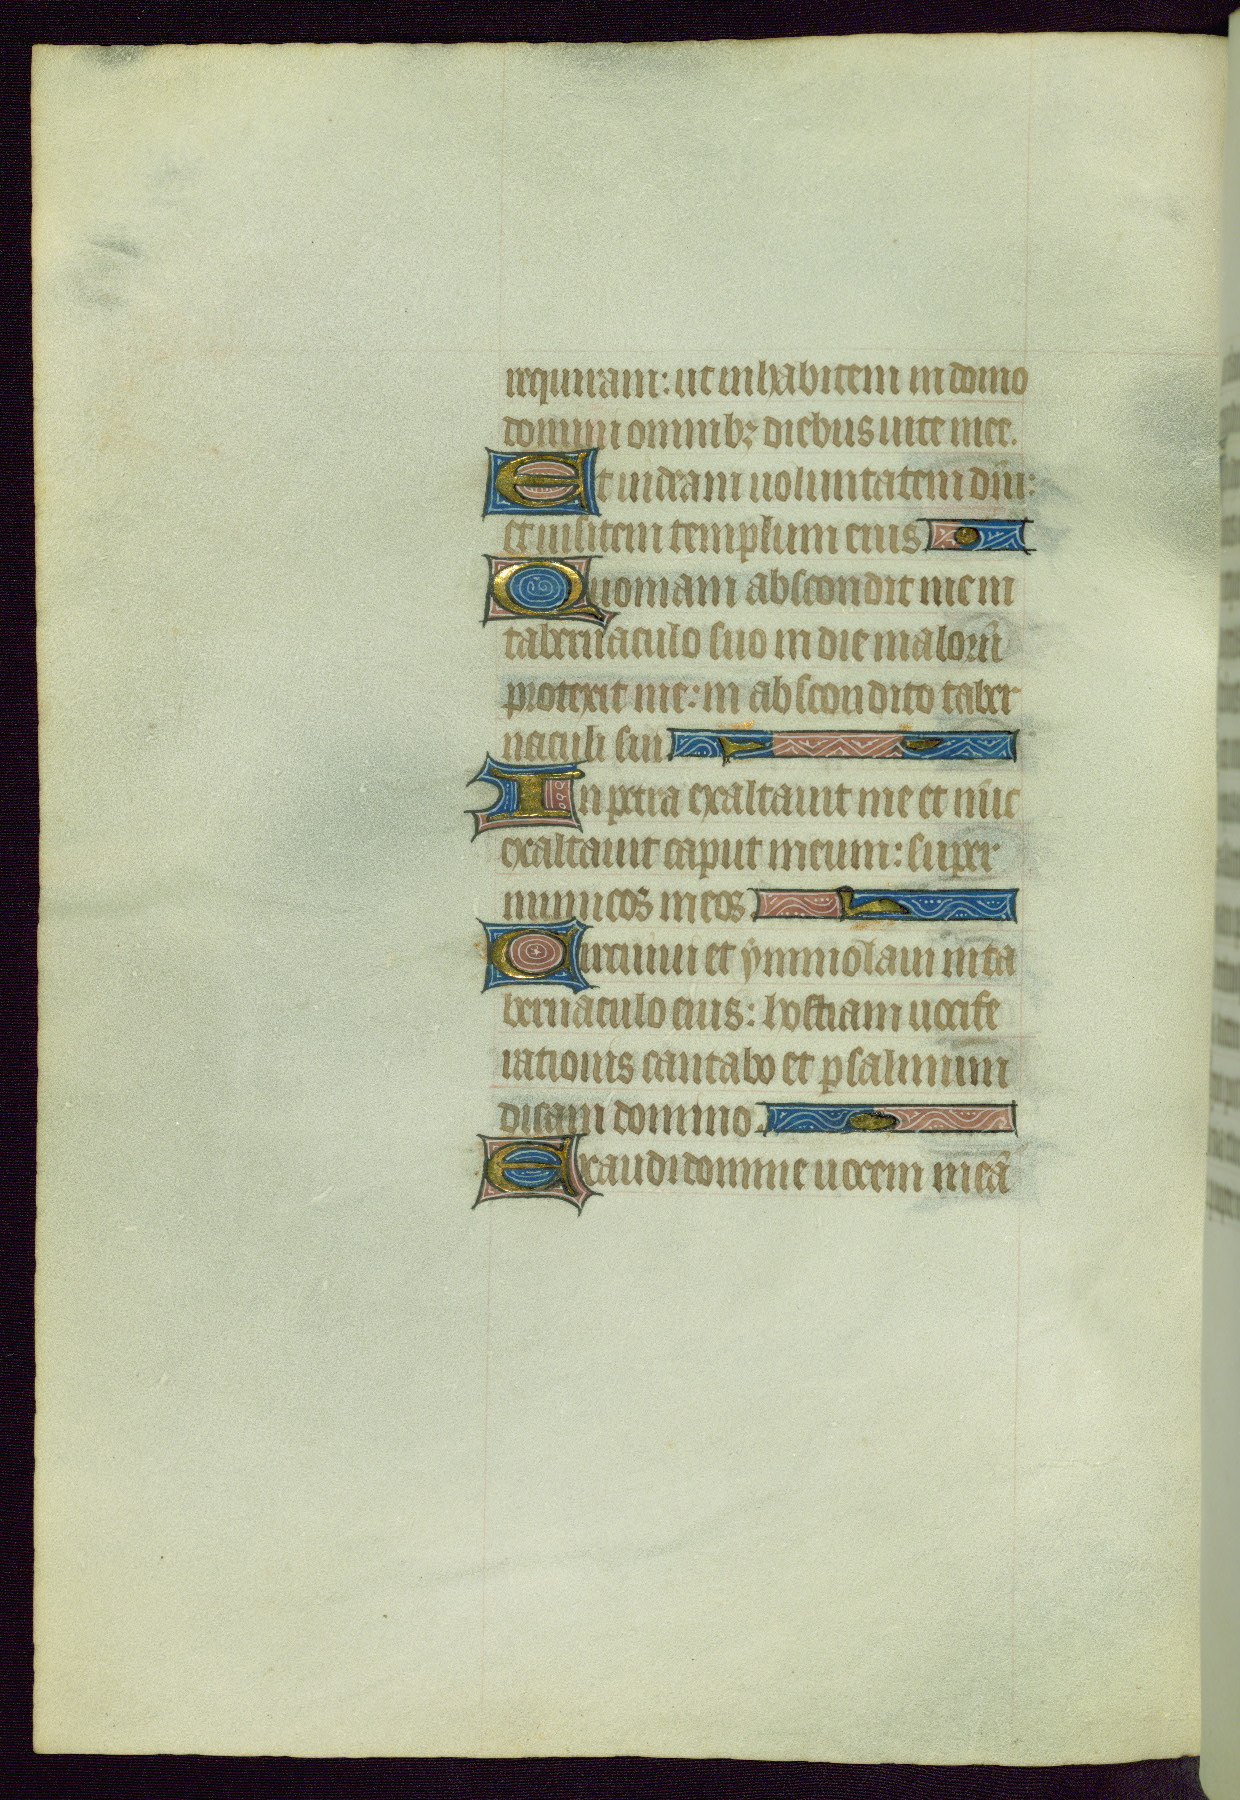 requiram: ut inhabitem in domo
domini omnibꝫ diebus uite mee.
Et uideam uoluntatem dn̄i:
et uisitem templum eius
Quoniam abscondit me in
tabernaculo suo in die malorū
protexit me: in abscondito taber
naculi sui
In petra exaltauit me et nūc
exaltauit caput meum: super
inimicos meos
Circuiui et ymmolaui in ta
bernaculo eius: hostiam uocife
rationis cantabo et psalmum
dicam domino.
Exaudi domine uocem meā